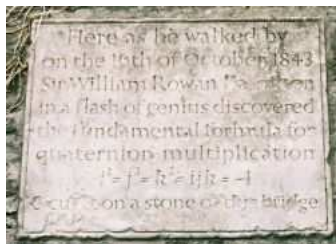 Here as he walked by
on the 16th of October 1843
Sir William Rowan Hamilton
in a flash of genius discovered
the fundamental formula for
quaternion multiplication
i² = j² = k² = ijk = −1
& cut it on a stone of this bridge